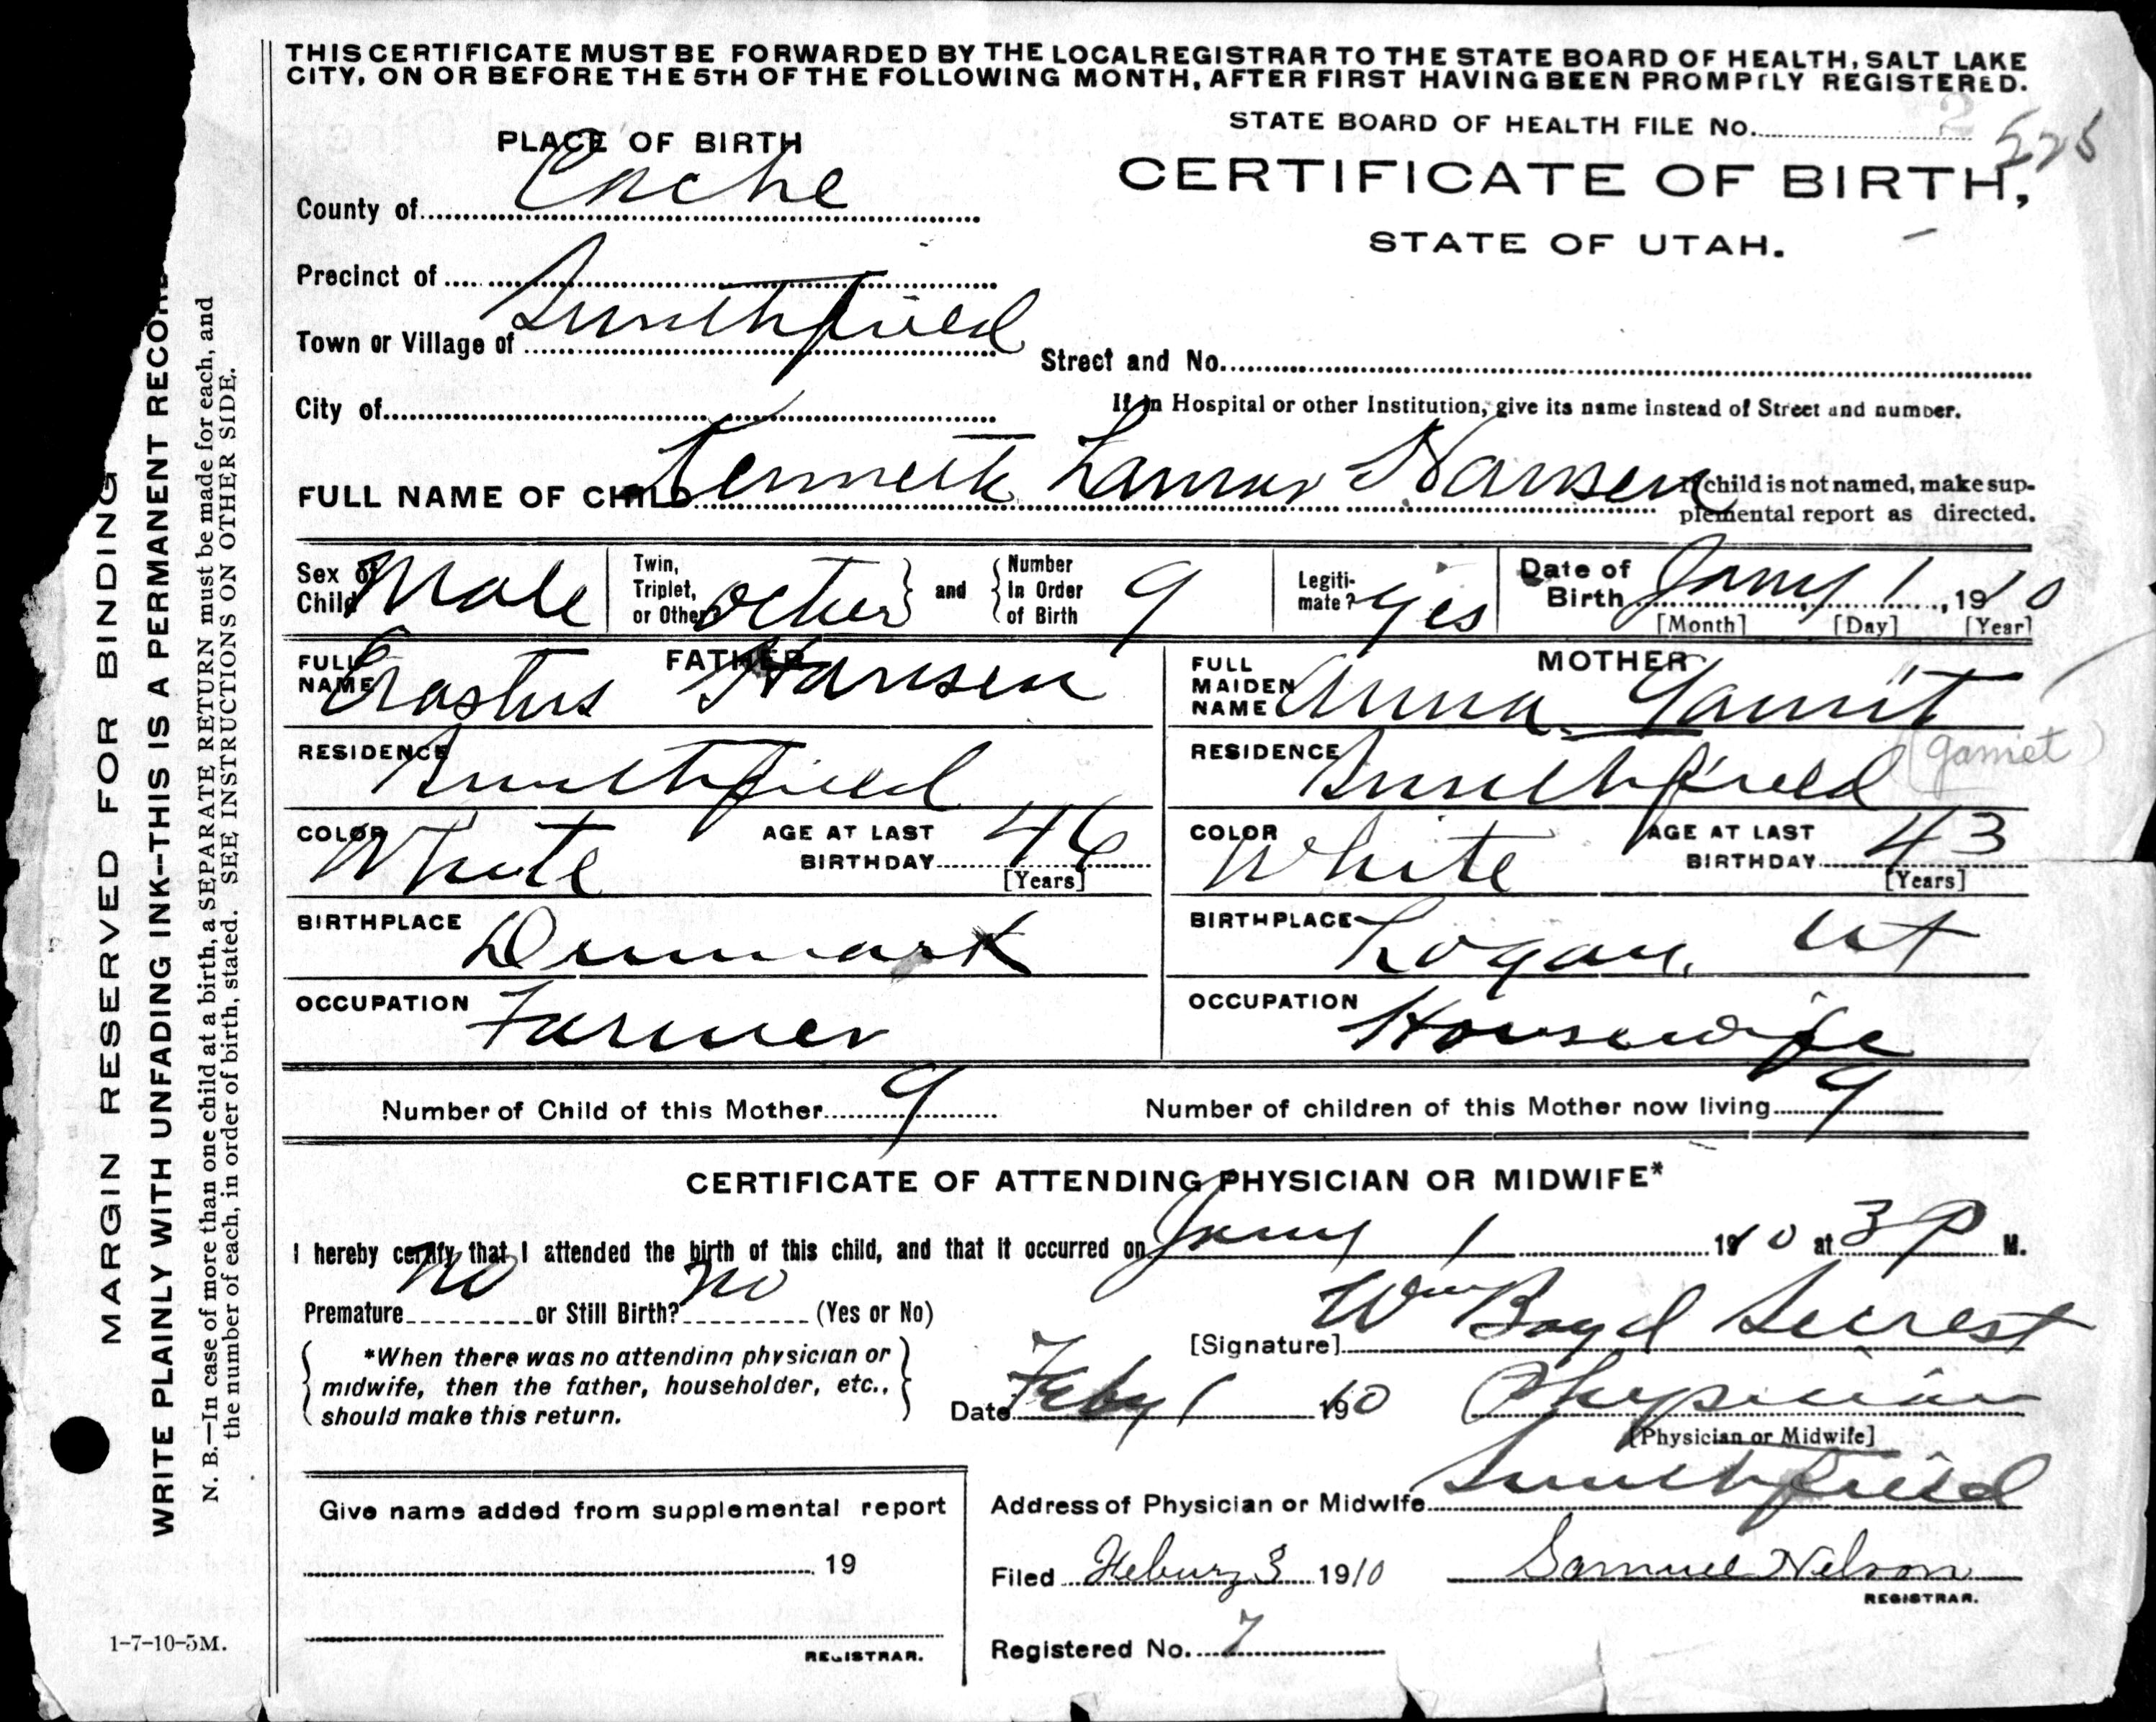 THIS CERTIFICATE MUST BE FORWARDED BY THE LOCAL REGISTRAR TO THE STATE BOARD OF HEALTH, SALT LAKE
CITY, ON OR BEFORE THE 5TH OF THE FOLLOWING MONTH, AFTER FIRST HAVING BEEN PROMPTLY REGISTERED.
STATE BOARD OF HEALTH FILE No. 2 525
PLACE OF BIRTH
CERTIFICATE OF BIRTH,
STATE OF UTAH.
County of Cache
Precinct of
Town or Village of Smithfield
Street and No.
City of
If in Hospital or other Institution, give its name instead of Street and number.
FULL NAME OF CHILD Kenneth Lamar Hansen
If child is not named, make sup-
plemental report as directed.
Sex of Child Male
Twin, Triplet, or Other? other and Number In Order of Birth 9
Legiti-mate? yes
Date of Birth Jany 1, 1910
[Month] [Day] [Year]
FATHER
FULL NAME Erastus Hansen
RESIDENCE Smithfield
COLOR White AGE AT LAST BIRTHDAY 46
[Years]
BIRTHPLACE Denmark
OCCUPATION Farmer
MOTHER
FULL MAIDEN NAME Anna Gamit
(gamet)
RESIDENCE Smithfield
COLOR White AGE AT LAST BIRTHDAY 43
[Years]
BIRTHPLACE Logan, Ut
OCCUPATION Housewife
Number of Child of this Mother 9
Number of children of this Mother now living 9
CERTIFICATE OF ATTENDING PHYSICIAN OR MIDWIFE*
I hereby certify that I attended the birth of this child, and that it occurred on Jany 1 1910 at 3 P M.
Premature no or Still Birth? no (Yes or No)
[Signature] Wm Boyd Secrest
*When there was no attending physician or
midwife, then the father, householder, etc.,
should make this return.
Date Feby 1 1910 Physician
[Physician or Midwife]
Address of Physician or Midwife Smithfield
Give name added from supplemental report
19
REGISTRAR.
Filed Febury 3 1910 Samuel Nelson
REGISTRAR.
Registered No. 7
1-7-10-5M.
MARGIN RESERVED FOR BINDING
WRITE PLAINLY WITH UNFADING INK--THIS IS A PERMANENT RECORD
N. B.—In case of more than one child at a birth, a SEPARATE RETURN must be made for each, and
the number of each, in order of birth, stated. SEE INSTRUCTIONS ON OTHER SIDE.